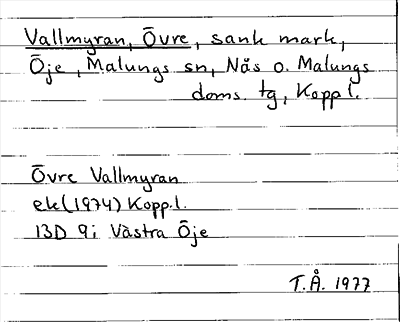 Vallmyran, Övre, sank mark,
Öje, Malungs sn, Nås o. Malungs
doms. tg, Kopp l.
Övre Vallmyran
ek (1974) Kopp. l.
13D 9i Västra Öje
T.Å. 1977